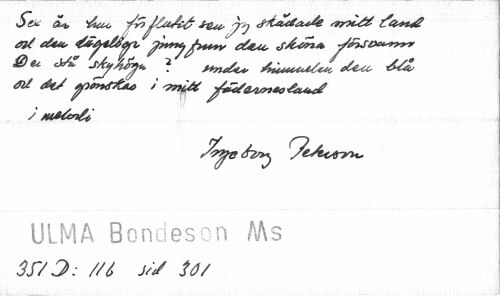 Sex år har förflutit sen jag skådade mitt land
och den fägeliga jungfrun den sköna försvann
De stå skyhöga ? under himmelen den blå
och det grönskas i mitt fädernesland
i melodi
Ingeborg Peterson
ULMA Bondeson Ms
351 D: 116 sid 301